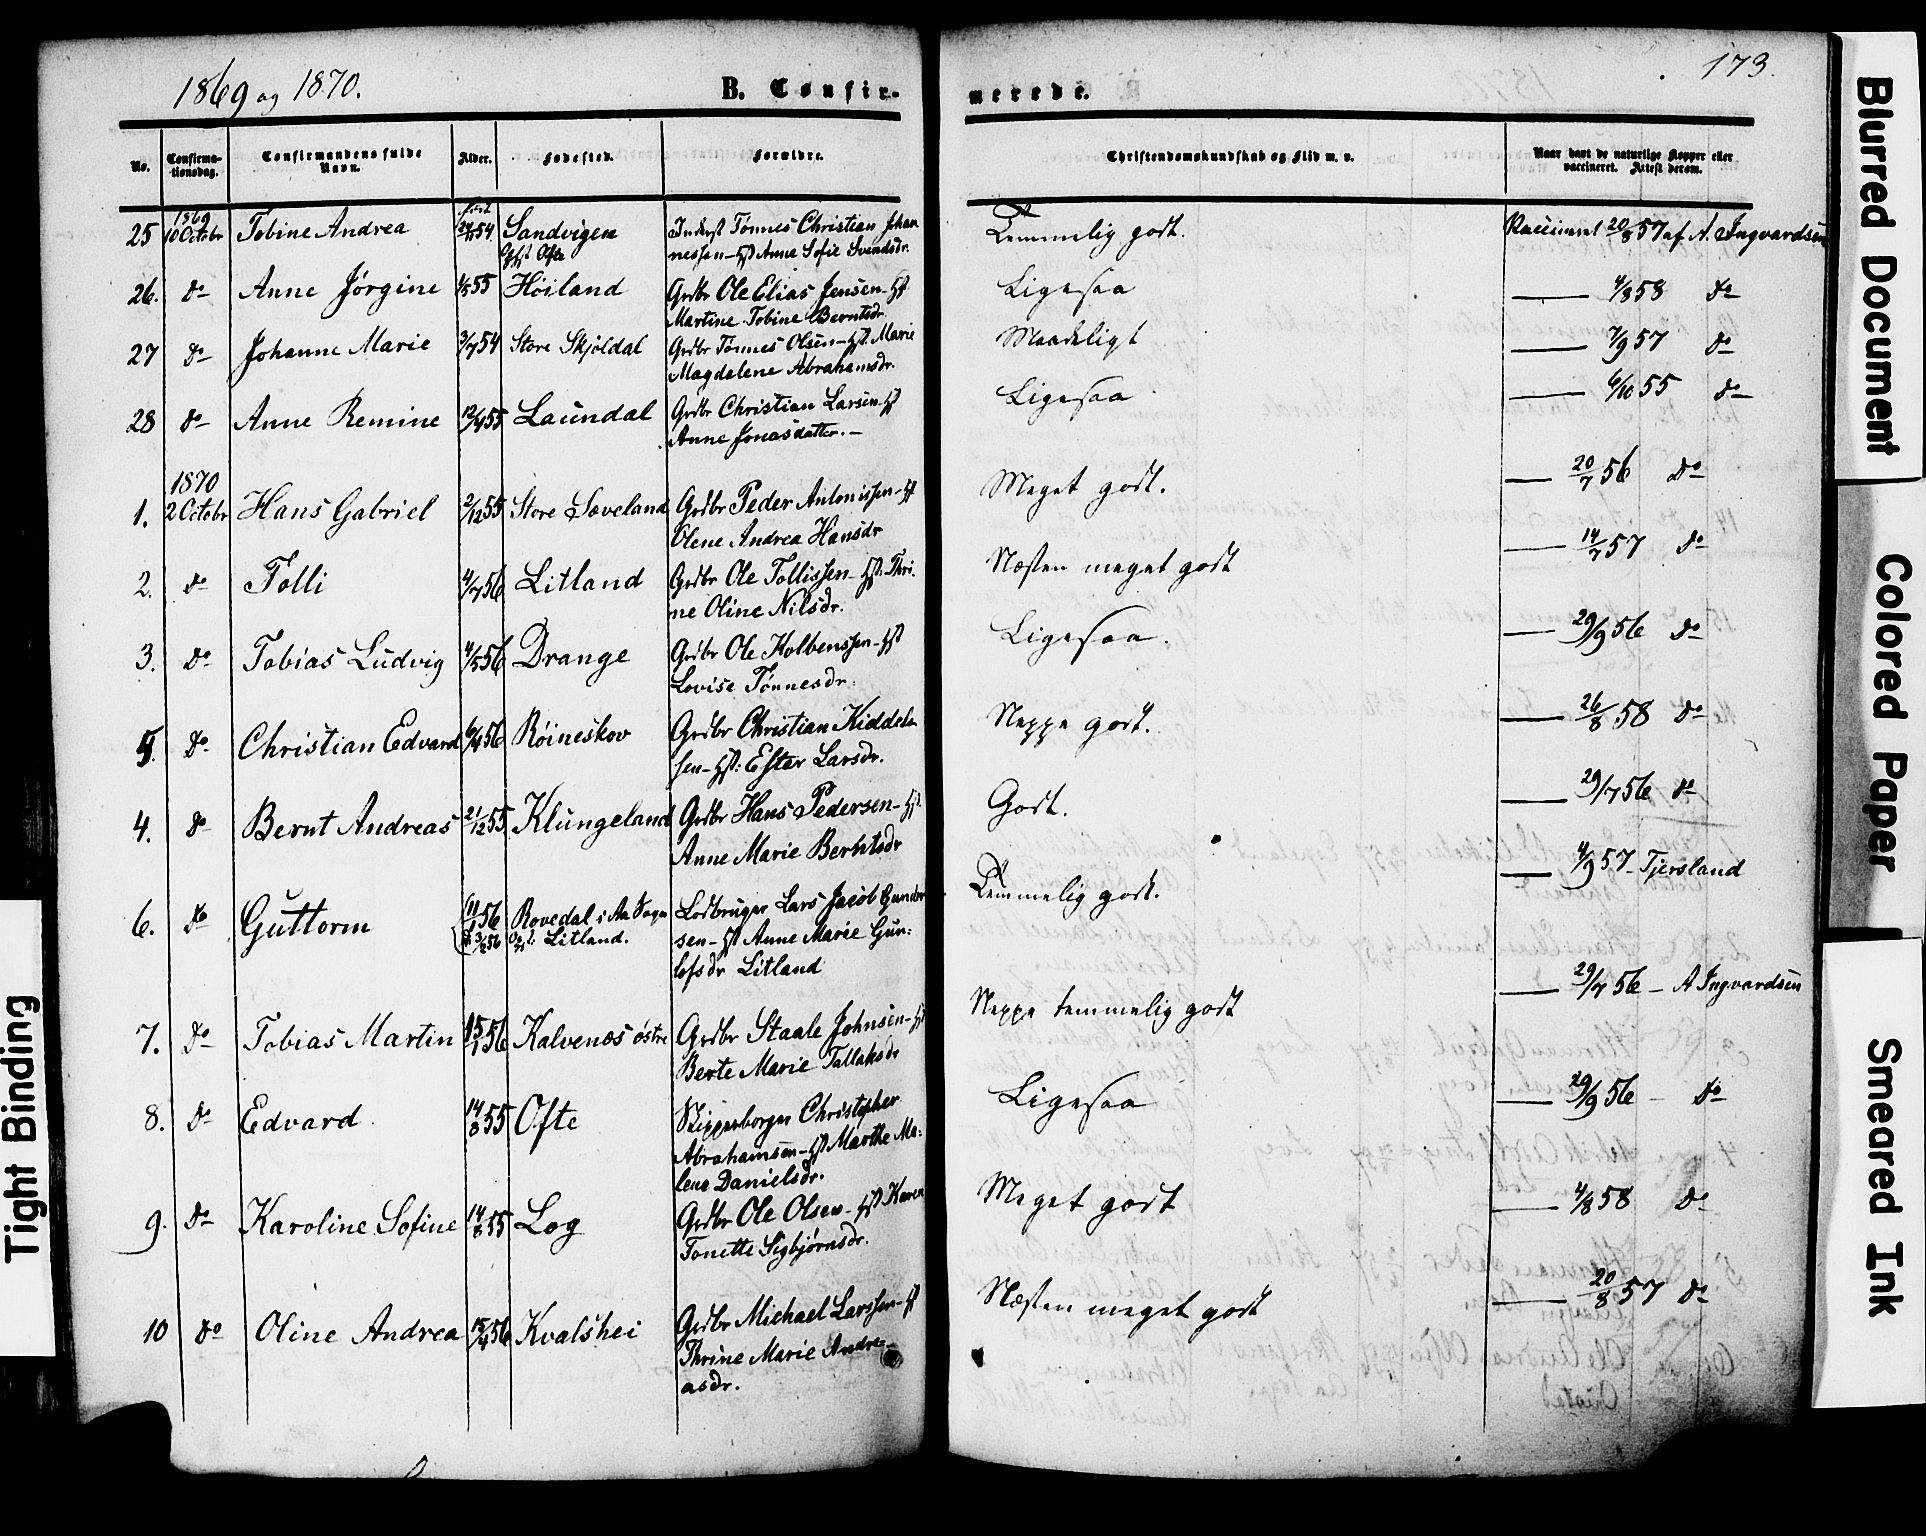 1869 og 1870.
B. Confir-
merede.
173.
No.
Confirma-
tionsdag.
Confirmandens fulde
Navn.
Alder.
Fødested.
Forældre.
Christendomskundskab og Flid m. v.
Naar havt de naturlige Kopper eller
vaccineret. Attest derom.
1869
25 10 Octobr Tobine Andrea 54 Sandvigen Inderst Tønnes Christian Johan Temmelig godt. Vaccineret 20/8 57 af A. Ingvardsen
Ofte nessen - Hst Anne Sofie Svendsdr.
26. Do Anne Jørgine 4/8 55 Høiland Grdbr Ole Elias Jensen - Hst Ligesaa 4/8 58 Do
Martine Tobine Berntsdr
27 Do Johanne Marie 3/7 54 Store Skjøldal Grdbr Tønnes Olsen - Hst. Marie Maadeligt 7/9 57 Do
Magdalene Abrahamsdr.
28 Do Anne Remine 12/4 55 Laundal Grdbr Christian Larsen - Hst Ligesaa 6/10 55 Do
Anne Jonasdatter. -
1870
1. 2 Octobr Hans Gabriel 2/12 55 Store Sæveland Grdbr Peder Antonissen - Hst Meget godt. 20/7 56 Do
Olene Andrea Hansdr
2. Do Tolli 4/7 56 Litland Grdbr Ole Tollissen - Hst. Thri- Næsten meget godt 14/7 57 Do
ne Oline Nilsdr.
3. Do Tobias Ludvig 4/5 56 Drange Grdbr Ole Kolbenssen - Hst Ligesaa. 29/9 56 Do
Lovise Tønnesdr.
5. Do Christian Edvard 6/4 56 Røineskov Grdbr Christian Kiddel- Neppe godt. 26/8 58 Do
sen - Hst: Ester Larsdr.
4. Do Bernt Andreas 21/12 55 Klungeland Grdbr Hans Pedersen - Hst. Godt. 29/7 56 Do
Anne Marie Berntsdr
6. Do Guttorm 11/1 56 Rovedal i Aa Sogn Lodbruger Lars Jacob Gunder Temmelig godt. 4/9 57 - Tjersland
D. 3/2 56 Litland. sen - Hst Anne Marie Gun-
lofsdr Litland
7. Do Tobias Martin 15/1 56 Kalvenæs østre Grdbr Staale Johnsen - Hst Neppe temmelig godt 29/7 56 - A Ingvardsen
Berte Marie Tallaksdr
8. Do Edvard 14/8 55 Ofte Christopher Ligesaa 29/9 56 - Do
Abrahamsen - Hst Marthe Ma-
lene Danielsdr.
9. Do Karoline Sofine 14/8 55 Log Grdbr Ole Olsen - Hst Karen Meget godt 4/8 58 Do
Tonette Sigbjørnsdr.
10 Do Oline Andrea 15/4 56 Kvalshei Grdbr Michael Larssen - Hst Næsten meget godt 20/8 57 Do
Thrine Marie Andre-
asdr.
Tight Binding
Blurred Document
Colored Paper
Smeared Ink